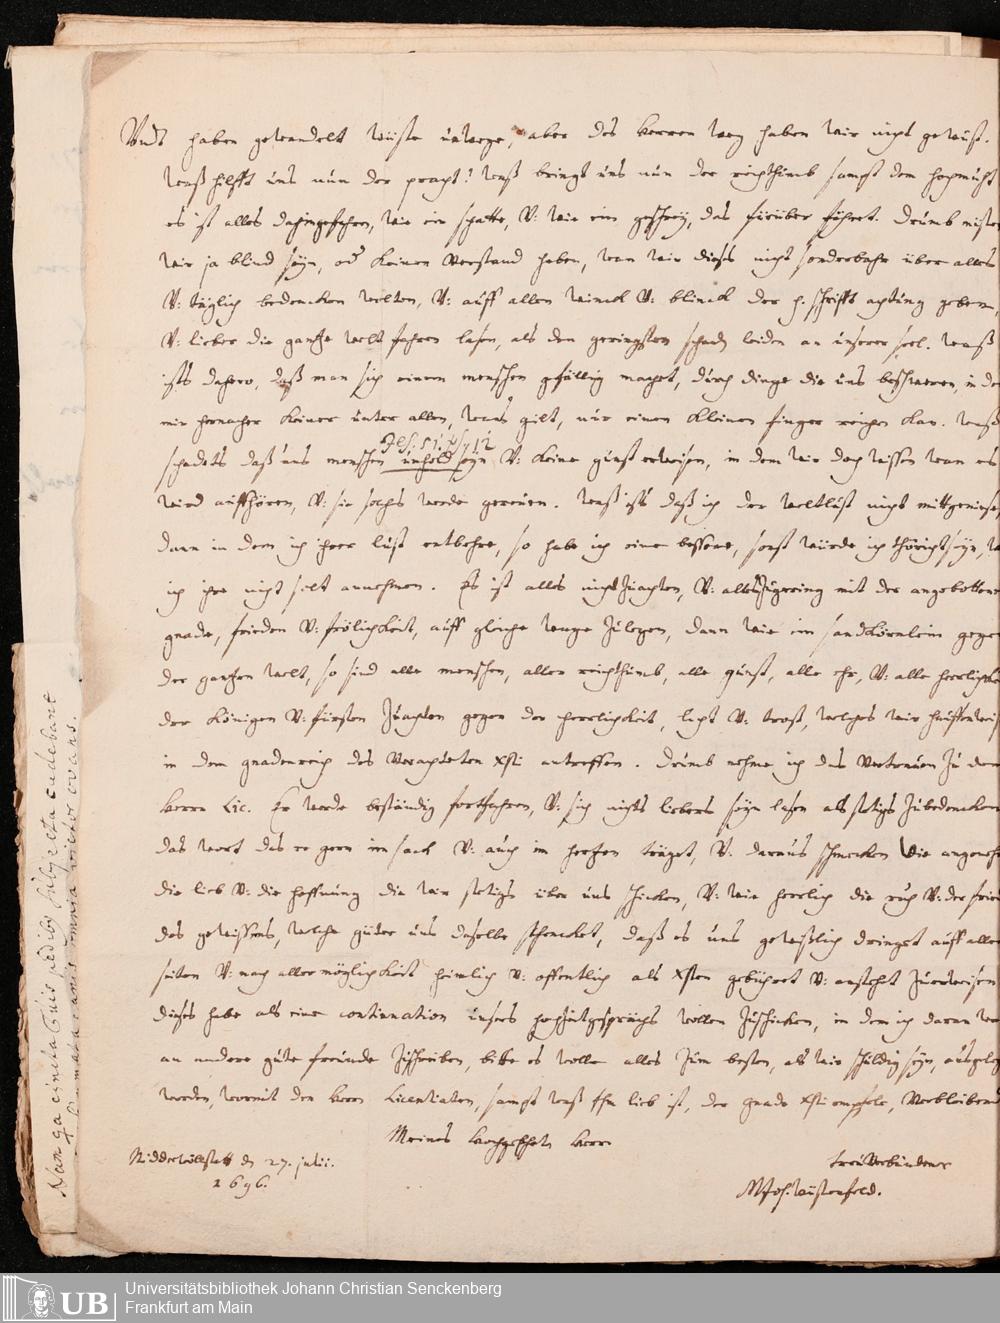 Und haben gewandelt wüste unwege, aber des Herren weg haben wir nicht gewust.
waß hilfft uns nun der pracht? waß bringt uns nun der reichthumb sampt dem hochmuht
es ist alles dahingefahren, wie ein schatte, V: wie ein geschrey, das fürüber fähret. Drumb müsten
wir ja blind seyn, od keinen verstand haben, wan wir dieses nicht sonderbahr über alles
V: täglich bedencken wolten, V: auff allen winck V: blinck der h. schrifft achtung geben,
V: lieber die gantze welt fahren lasen, als den geringsten schaden leiden an unserer seel. Waß
ists dahero, daß man sich einem menschen gefällig machet, durch dinge die uns beschweren, in dem
mir hernacher keiner unter allen, was gilt, nur einen kleinen finger reichen kan. Waß
Jes. 51. 7 12
schadets daß uns menschen unhold seyn V: keine gunst erweisen, in dem wir doch wissen wan es
wird auffhören, V: sie solchs werde gereuen. Waß ists daß ich der weltlust nicht mittgeniese,
dann in dem ich ihrer lust entbehre, so habe ich eine bessere, sonst würde ich thöricht seyn,
ich ihre nicht solt annehmen. Es ist alles nichts zuachten, V: alles zugering mit der angebottenen
gnade, frieden V: frölichkeit, auff gleiche wage zulegen, dann wie ein sandkörnlein gegen
der gantzen welt, so sind alle menschen, aller reichthumb, alle gunst, alle ehr, V: alle herrlichkeit
der Königen V: fürsten zuachten gegen der herrlichkeit, lust V: trost, welches wir hauffenweis
in dem gnadenreich des verachteten Xsti antreffen. Drumb nehme ich das vertrauen zu dem
Herrn Lic. Er werde beständig fortfahren, V: sich nichts liebers seyn lasen als stetigs zubedencken
das wort das er gern im sack V: auch im hertzen träget, V: daraus schmecken wie angenehm
die lieb V: die hoffnung die wir stetigs über uns schicken, V: wie herrlich die ruh V: der fried
des gewissens, welche güter uns daselbe schencket, daß es uns gewißlich dringet auff allen
seiten V: nach aller möglichkeit heimlich V: offentlich als Xsten gebühret V: anstehet zuerweisen
dieses habe als eine continuation unsers gesprächs wollen zuschicken, in dem ich daran war
an andere gute freunde zuschreiben, bitte es wolle alles zum besten, als wir schuldig seyn, ausgelegt
werden, wormit den Herrn Licentiaten, sampt waß Ihn lieb ist, der gnade Xsti empfele, verbleibend
Meines hochgeehrten Herrn
Nidderwöllstatt d 27. julii.
1696.
treuverbundener
M Joh. Wüstenfeld.